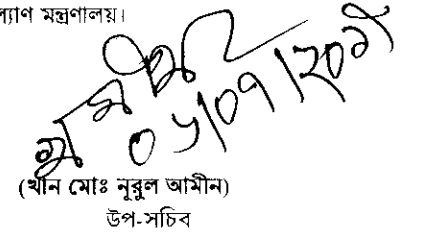 ল্যাণ মন্ত্রণালয়।
০৬/০৭/২০
(খান মোঃ নূরুল আমীন)
উপ-সচিব